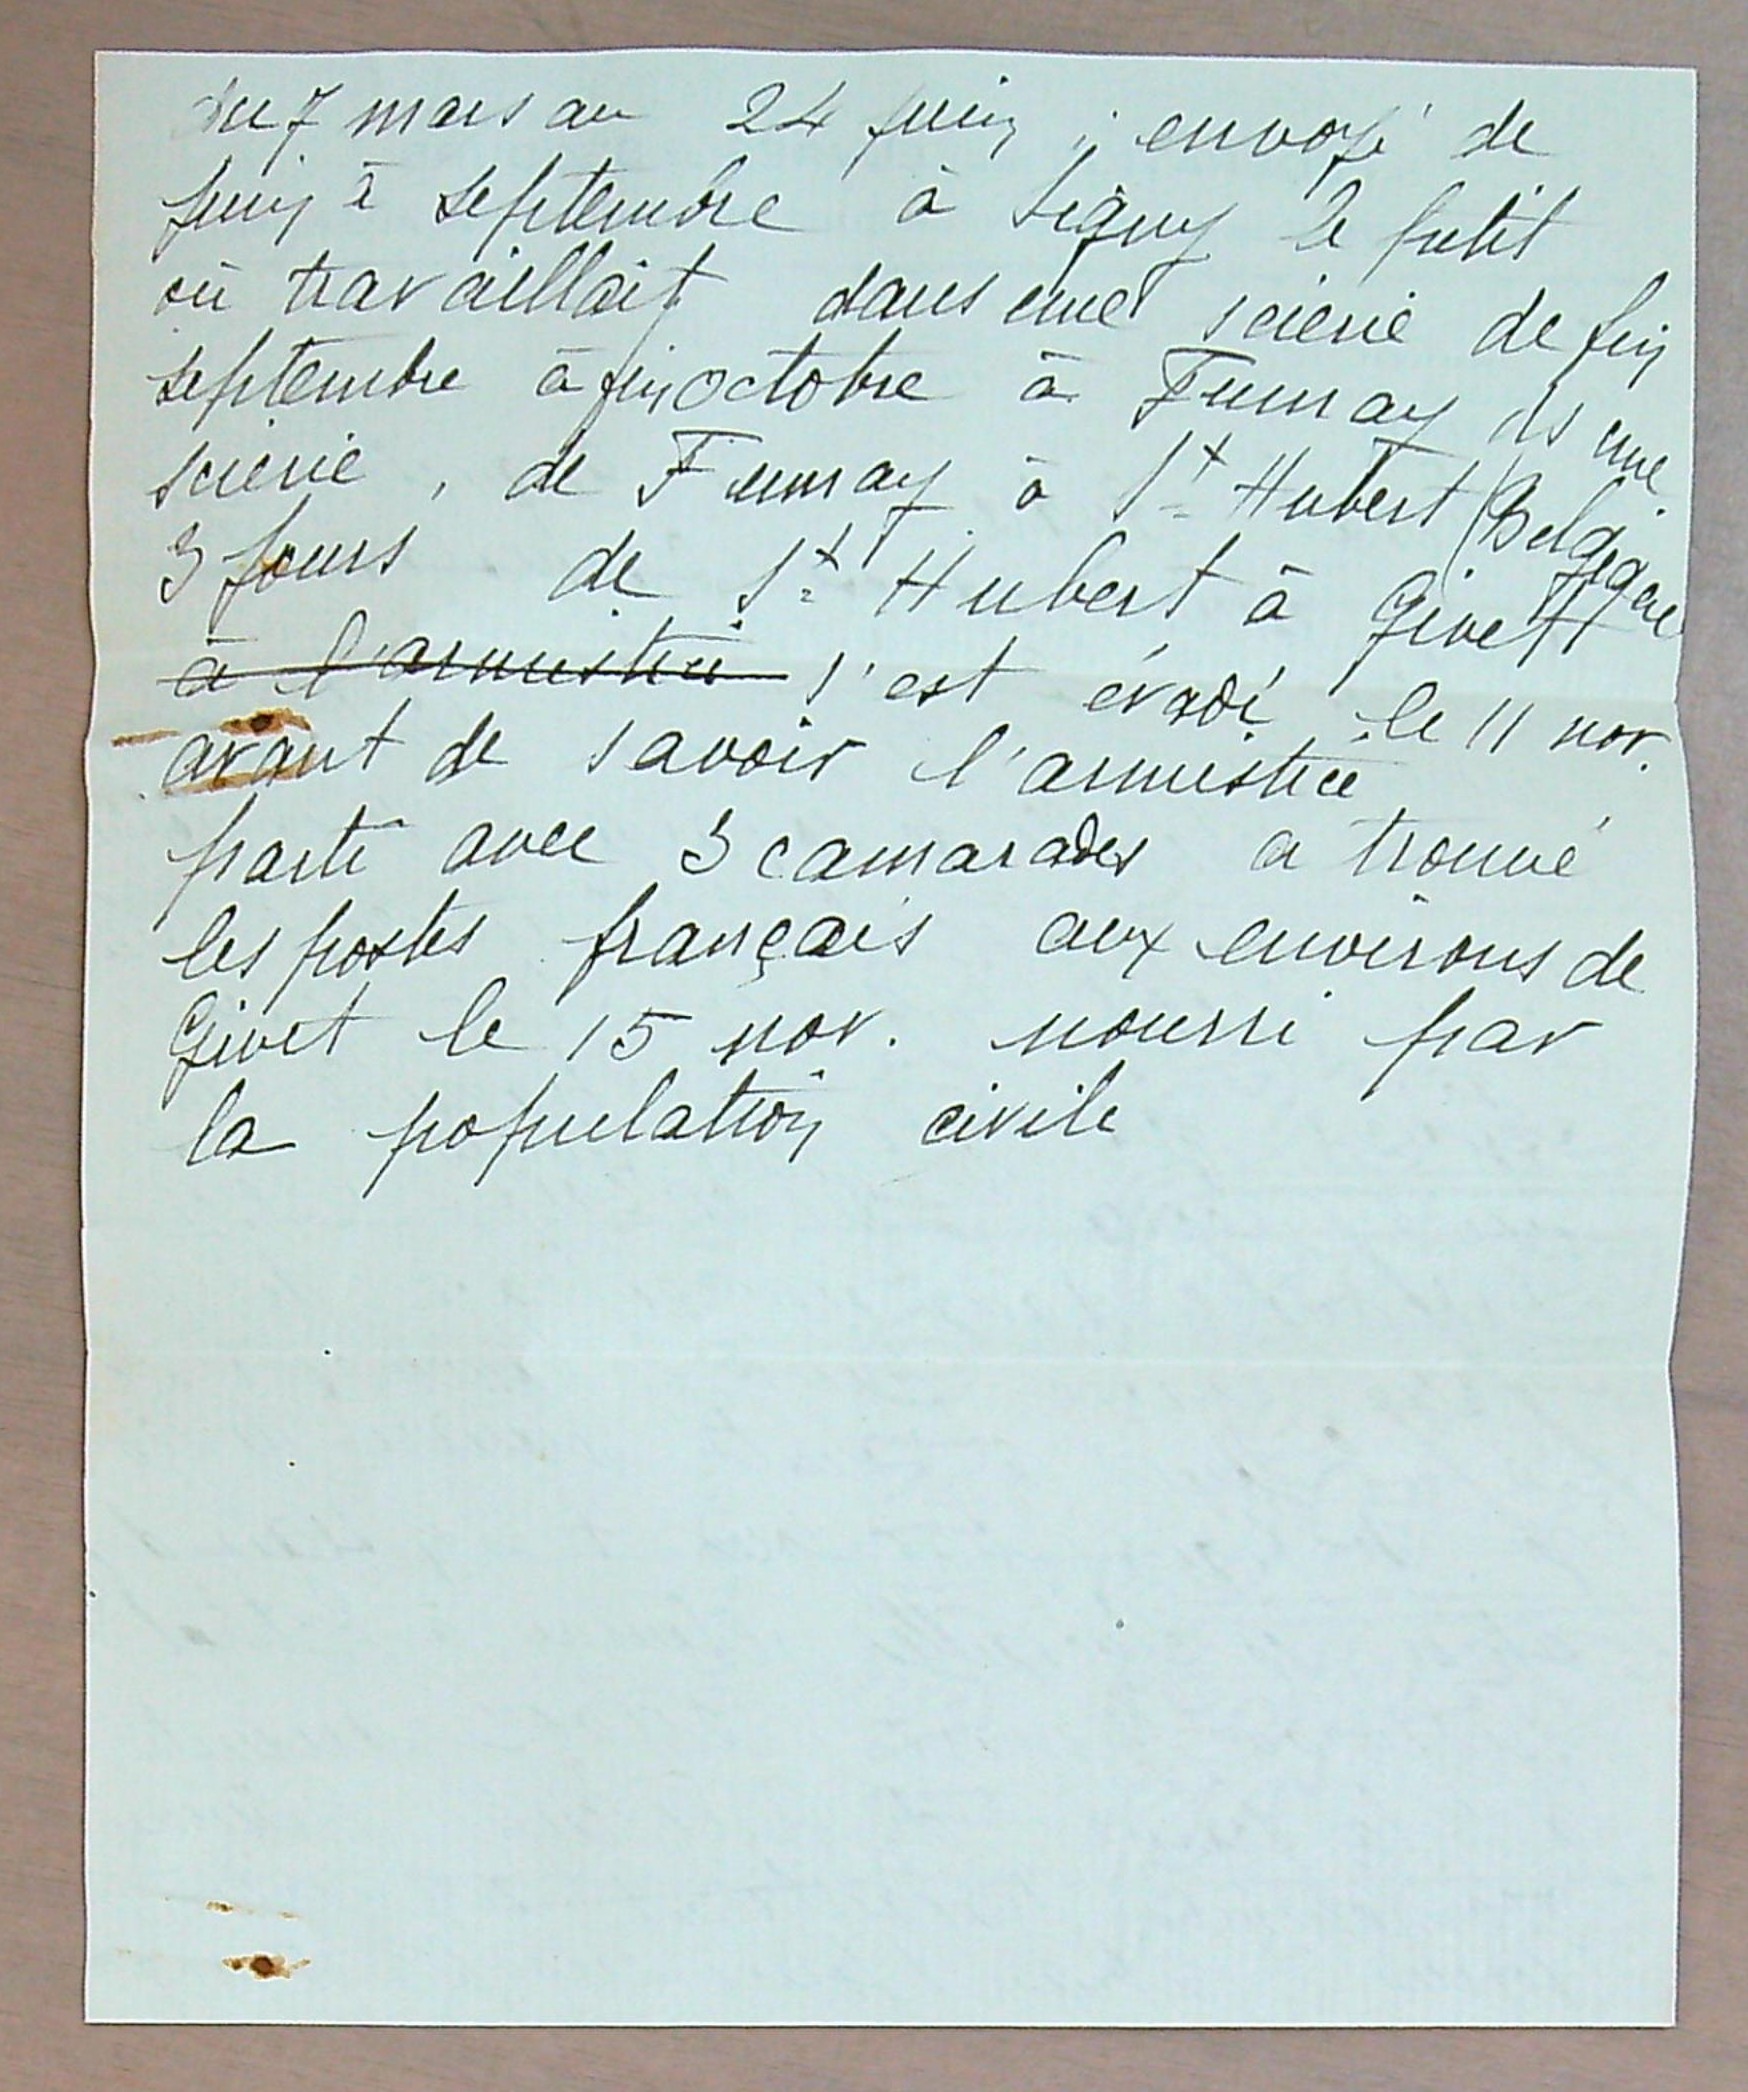 du 7 mars au 24 juin ; envoyé de
juin à septembre à Signy le petit
où travaillait dans une scierie de fin
septembre à fin octobre à Fumay ds une
scierie, de Fumay à St Hubert (Belgique
3 jours de St Hubert à Givet
à l'armistice s'est évadé le 11 nov.
avant de savoir l'armistice
parti avec 3 camarades a trouvé
les postes français aux environs de
Givet le 15 nov. nourri par
la population civile